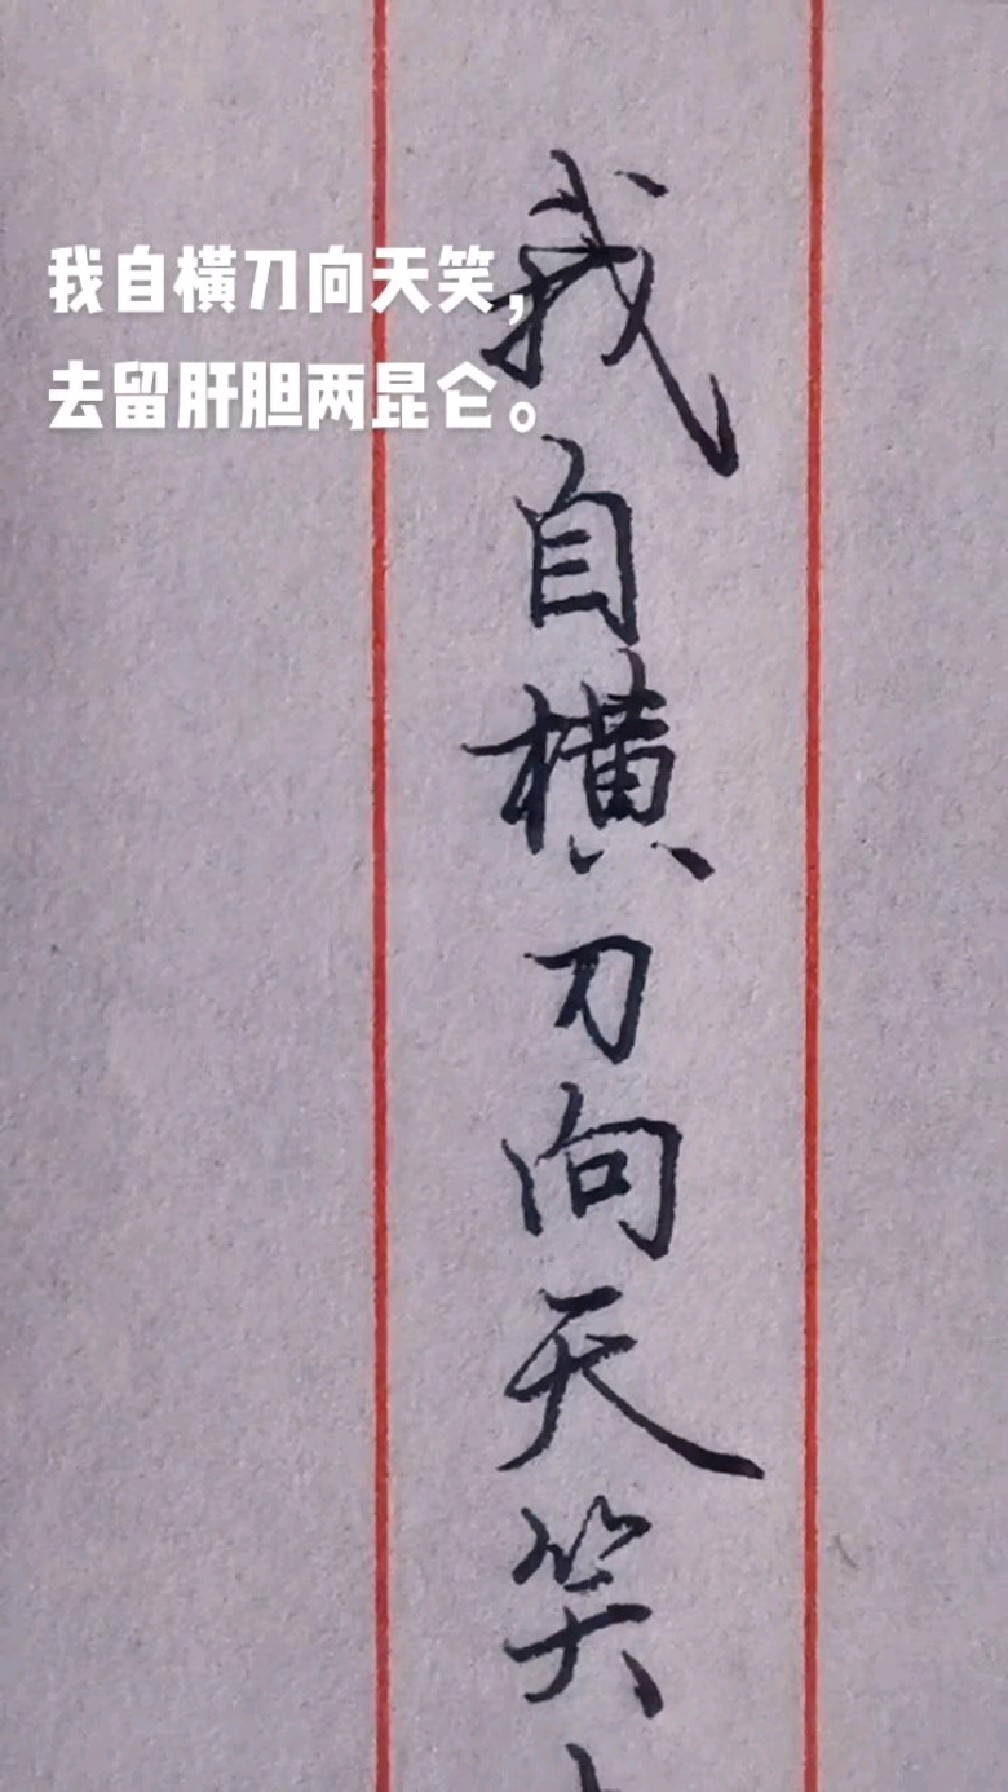 我自横刀向天笑，
去留肝胆两昆仑。
我自横刀向天笑